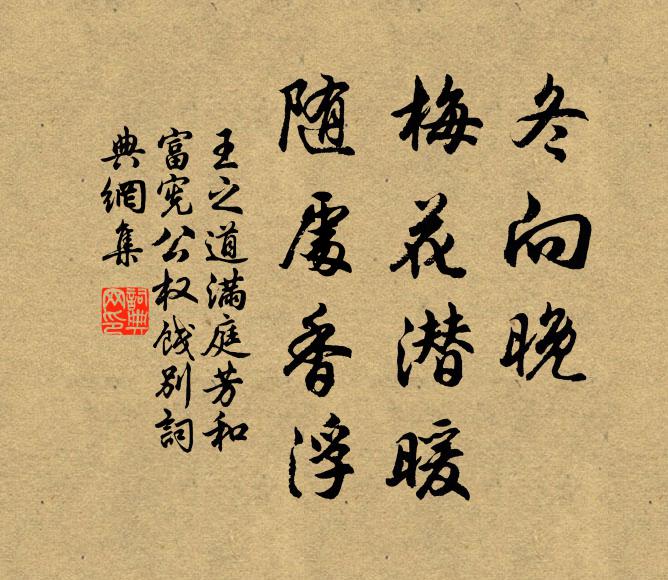 冬向晚
梅花潜暖
随處香浮
王之道满庭芳和
富宪公权饯别詞
典網集
詞典网印